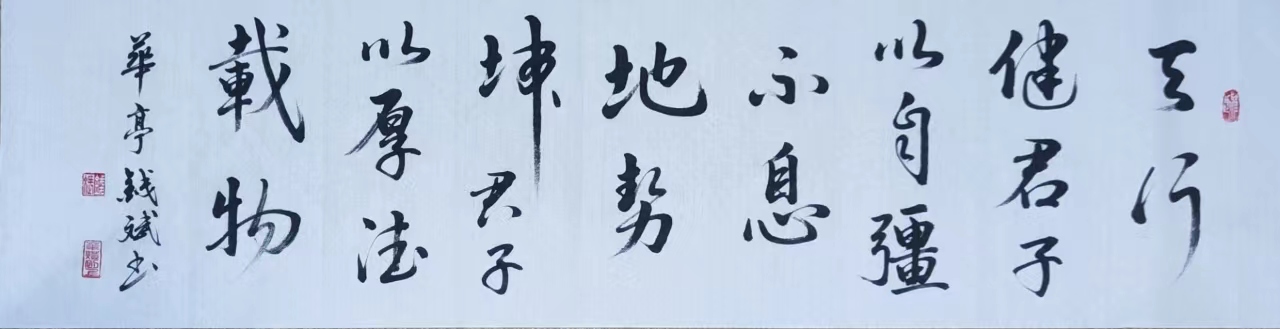 天行
健君子
以自彊
不息
地势
坤君子
以厚德
載物
華亭钱斌书